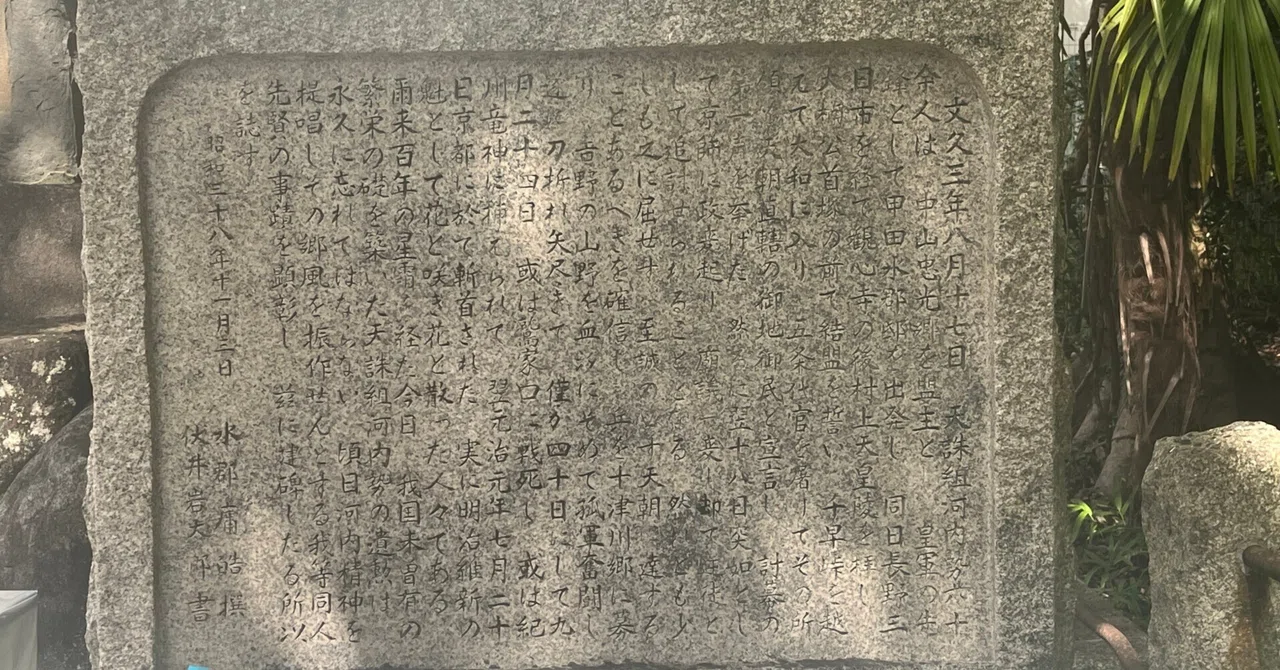 文久三年八月十七日 天誅組河内勢六十
余人は 中山忠光卿を盟主と 皇軍の先
鋒として甲田水郡邸を出発し 同日長野三
日市を経て観心寺の後村上天皇陵を拝し
大楠公首塚の前で結盟を誓い 千早峠を越
えて大和に入り 五条代官を屠りてその所
領を天朝直轄の御地御民と宣言し 討幕の
第一声を挙げた 然るに翌十八日突如とし
て京師に政変起り 廟議一変し却て 徒と
して追討せられることとなる 然れども少
しも之に屈せず 至誠の 天朝に達する
ことあるべきを確信し 兵を十津川郷に募
り 吉野の山野を血汐にそめて孤軍奮闘し
刀折れ矢尽きて 僅か四十日にして九
月二十四日 或は鷲家口に戦死し 或は紀
州竜神に捕えられて 翌元治元年七月二十
日京都に於て斬首された 実に明治維新の
魁として花と咲き花と散った人々である
爾来百年の星霜を経た今日 我国未曽有の
繁栄の礎を築いた天誅組河内勢の遺勲は
永久に忘れてはならない 頃日河内精神を
提唱しその郷風を振作せんとする我等同人
先賢の事蹟を顕彰し 茲に建碑したる所以
を誌す
昭和三十八年十一月三日 水郡庸皓 撰
伏井岩太郎 書